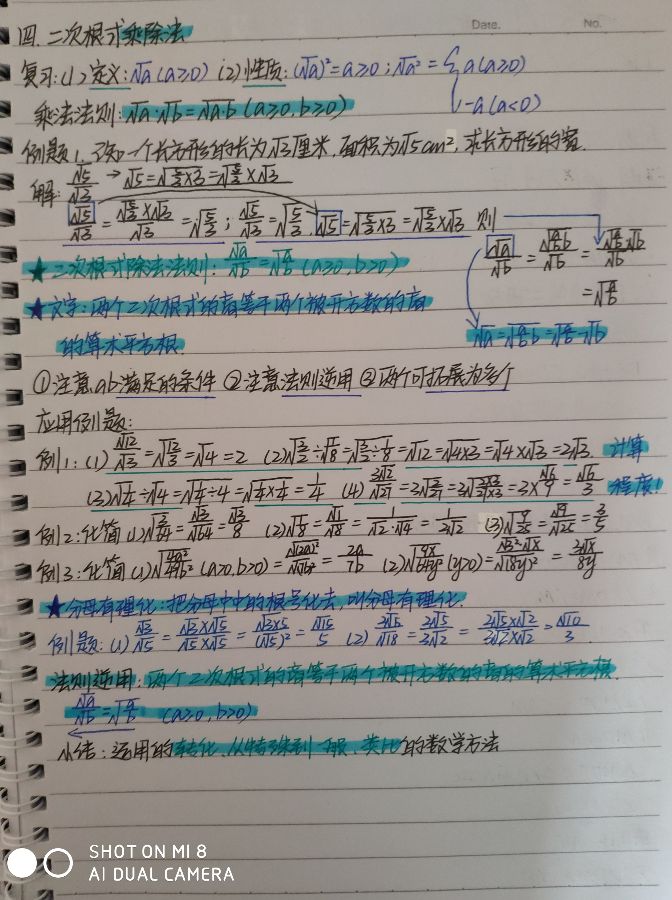 Date. No.
四. 二次根式乘除法
复习:(1)定义:√a(a≥0) (2)性质:(√a)²=a≥0;√a²={a(a≥0)
-a(a<0)
乘法法则:√a·√b=√a·b (a≥0,b≥0)
例题1.已知一个长方形的长为√3厘米,面积为√5cm²,求长方形的宽.
解: √5/√3 → √5=√(5/3×3)=√(5/3)×√3
√5/√3=(√(5/3)×√3)/√3=√(5/3); √5/√3=√(5/3), √5=√(5/3×3)=√(5/3)×√3 则 √a/√b=√(a/b·b)/√b=(√(a/b)·√b)/√b
=√(a/b)
★二次根式除法法则: √a/√b=√(a/b) (a≥0,b>0)
★文字:两个二次根式的商等于两个被开方数的商
的算术平方根.
√a=√(a/b·b)=√(a/b)·√b
①注意ab满足的条件 ②注意法则逆用 ③两个可拓展为多个
应用例题:
例1:(1) √12/√3=√(12/3)=√4=2 (2)√(3/2)÷√(1/8)=√(3/2÷1/8)=√12=√(4×3)=√4×√3=2√3. 计算
(3)√(1/4)÷√4=√(1/4÷4)=√(1/4×1/4)=1/4 (4) 3√2/√27 程度!
例2:化简(1)√(3/64)=√3/√64=√3/8 (2)√(1/8)=√1/√8=1/(√2·√4)=1/(2√2) (3)√(9/25)=√9/√25=3/5
例3:化简(1)√(4a²/49b²)(a≥0,b>0) =2a/7b (2)√(9x/64y²)(y>0)=√3²·√x/√(8y)²=3√x/8y
★分母有理化:把分母中中的根号化去,叫分母有理化.
例题:(1) √3/√5=(√3×√5)/(√5×√5)=√(3×5)/(√5)²=√15/5 (2) 2√5/√18=2√5/3√2=(2√5×√2)/(3√2×√2)=√10/3
法则逆用:两个二次根式的商等于两个被开方数的商的算术平方根.
√a/√b=√(a/b) (a≥0,b>0)
小结:运用的转化.从特殊到一般.类比的数学方法
SHOT ON MI 8
AI DUAL CAMERA